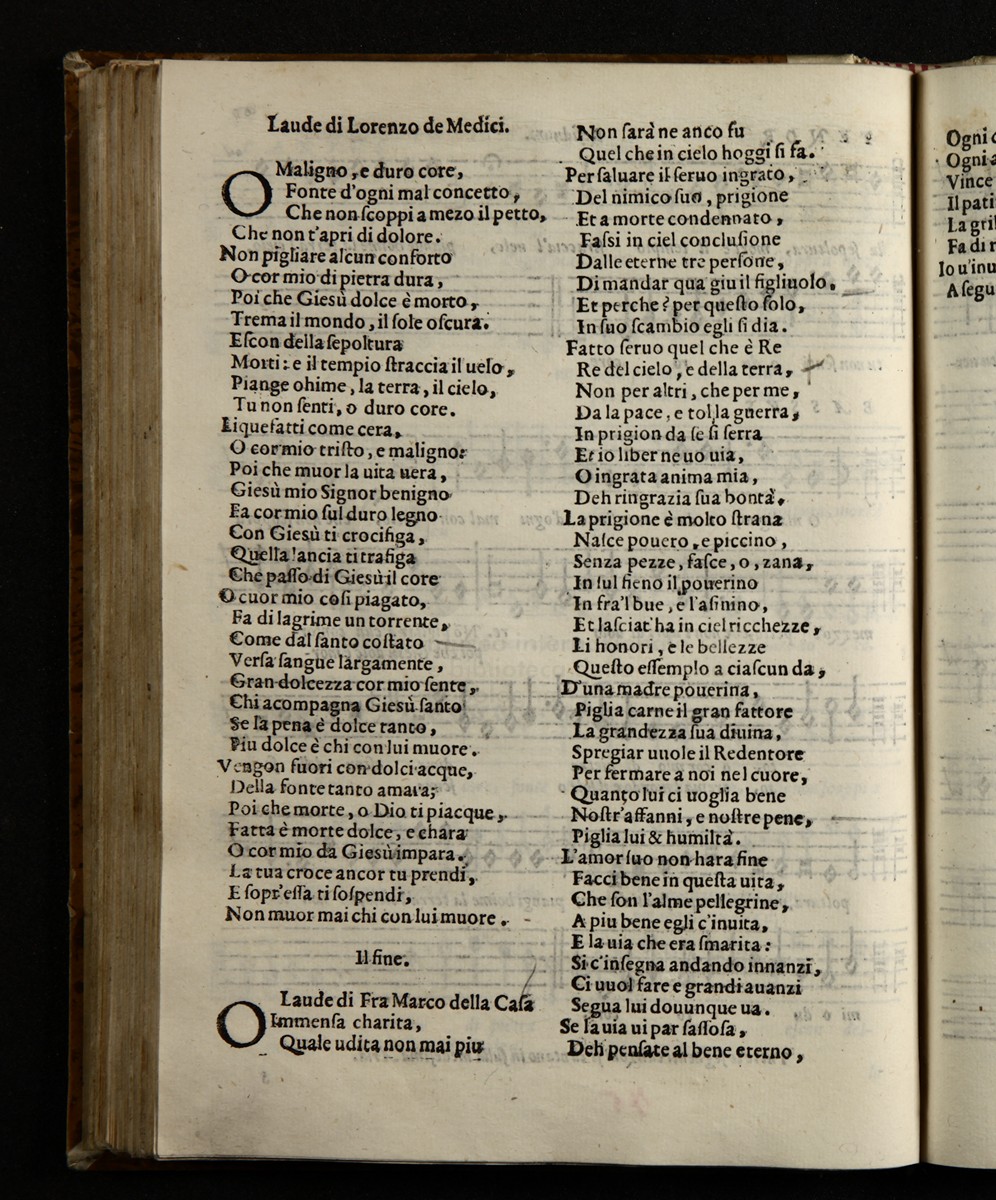 Laude di Lorenzo de Medici.
O Maligno, e duro core,
Fonte d'ogni mal concetto,
Che non ſcoppi a mezo il petto,
Che non t'apri di dolore.
Non pigliare alcun conforto
O cor mio di pietra dura,
Poi che Gieſù dolce è morto,
Trema il mondo, il ſole oſcura.
Eſcon della ſepoltura
Morti: e il tempio ſtraccia il uelo,
Piange ohime, la terra, il cielo,
Tu non ſenti, o duro core.
Liquefatti come cera,
O cor mio triſto, e maligno:
Poi che muor la uita uera,
Gieſù mio Signor benigno
Fa cor mio ſul duro legno
Con Gieſù ti crocifiga,
Quella lancia ti trafiga
Che paſſo di Gieſù il core
O cuor mio coſi piagato,
Fa di lagrime un torrente,
Come dal ſanto coſtato
Verſa ſangue largamente,
Gran dolcezza cor mio ſente,
Chi acompagna Gieſù ſanto
Se la pena è dolce tanto,
Piu dolce è chi con lui muore.
Vengon fuori con dolci acque,
Della fonte tanto amara;
Poi che morte, o Dio ti piacque,
Fatta è morte dolce, e chara
O cor mio da Gieſù impara.
La tua croce ancor tu prendi,
E ſopr'eſſa ti ſoſpendi,
Non muor mai chi con lui muore.
Il fine.
Laude di Fra Marco della Caſa
O Immenſa charita,
Quale udita non mai piu
Non ſarà ne anco fu
Quel che in cielo hoggi ſi fa.
Per ſaluare il ſeruo ingrato,
Del nimico ſuo, prigione
Et a morte condennato,
Faſsi in ciel concluſione
Dalle eterne tre perſone,
Di mandar qua giu il figliuolo,
Et perche? per queſto ſolo,
In ſuo ſcambio egli ſi dia.
Fatto ſeruo quel che è Re
Re del cielo, e della terra,
Non per altri, che per me,
Da la pace, e tolla guerra,
In prigion da ſe ſi ſerra
Et io liber ne uo uia,
O ingrata anima mia,
Deh ringrazia ſua bontà,
La prigione è molto ſtrana
Naſce pouero, e piccino,
Senza pezze, faſce, o, zana,
In ſul fieno il pouerino
In fra'l bue, e l'aſinino,
Et laſciat'ha in ciel ricchezze,
Li honori, e le bellezze
Queſto eſſemplo a ciaſcun da,
D'una madre pouerina,
Piglia carne il gran fattore
La grandezza ſua diuina,
Spregiar uuole il Redentore
Per fermare a noi nel cuore,
Quanto lui ci uoglia bene
Noſtr'affanni, e noſtre pene,
Piglia lui & humiltà.
L'amor ſuo non hara fine
Facci bene in queſta uita,
Che ſon l'alme pellegrine,
A piu bene egli c'inuita,
E la uia che era ſmarita:
Si c'inſegna andando innanzi,
Ci uuol fare e grandi auanzi
Segua lui douunque ua.
Se la uia ui par ſaſſoſa,
Deh penſate al bene eterno,
Ogni
Ogni
Vince
Il pati
La gril
Fa di
Io u'inu
A ſegu